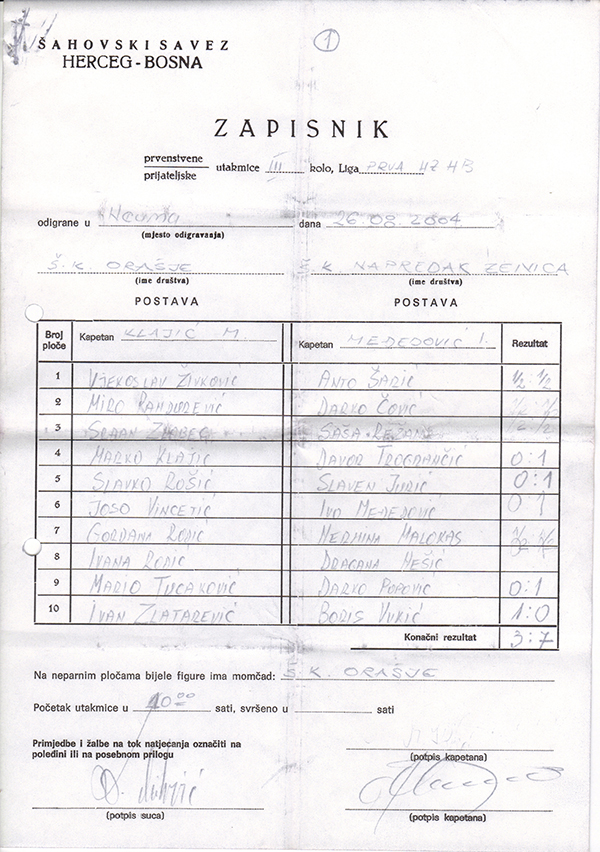 ŠAHOVSKI SAVEZ
HERCEG-BOSNA
1
ZAPISNIK
prvenstvene
prijateljske
utakmice III kolo, Liga PRVA HZ HB
odigrane u Neuma dana 26.08.2004
(mjesto odigravanja)
Š.K. ORAŠJE Š.K. NAPREDAK ZENICA
(ime društva) (ime društva)
POSTAVA POSTAVA
Broj ploče Kapetan KLAJIĆ M. Kapetan MEĐEDOVIĆ I. Rezultat
1 VJEKOSLAV ŽIVKOVIĆ ANTO ŠARIĆ ½:½
2 MIRO DARKO ČOVIĆ ½:½
3 SAŠA ½:½
4 MARKO KLAJIĆ DAVOR TROGRANČIĆ 0:1
5 SLAVKO ROŠIĆ SLAVEN JURIĆ 0:1
6 JOSO VINCETIĆ IVO MEĐEDOVIĆ 0 1
7 GORDANA RODIĆ NERMINA MALOKAS ½:½
8 IVANA RODIĆ DRAGANA HEŠIĆ
9 MARIO TUCAKOVIĆ DARKO POPOVIĆ 0:1
10 IVAN ZLATAREVIĆ BORIS VUKIĆ 1:0
Konačni rezultat 3:7
Na neparnim pločama bijele figure ima momčad: Š.K. ORAŠJE
Početak utakmice u 10.00 sati, svršeno u sati
Primjedbe i žalbe na tok natjecanja označiti na
poleđini ili na posebnim prilogu
(potpis kapetana)
(potpis suca) (potpis kapetana)